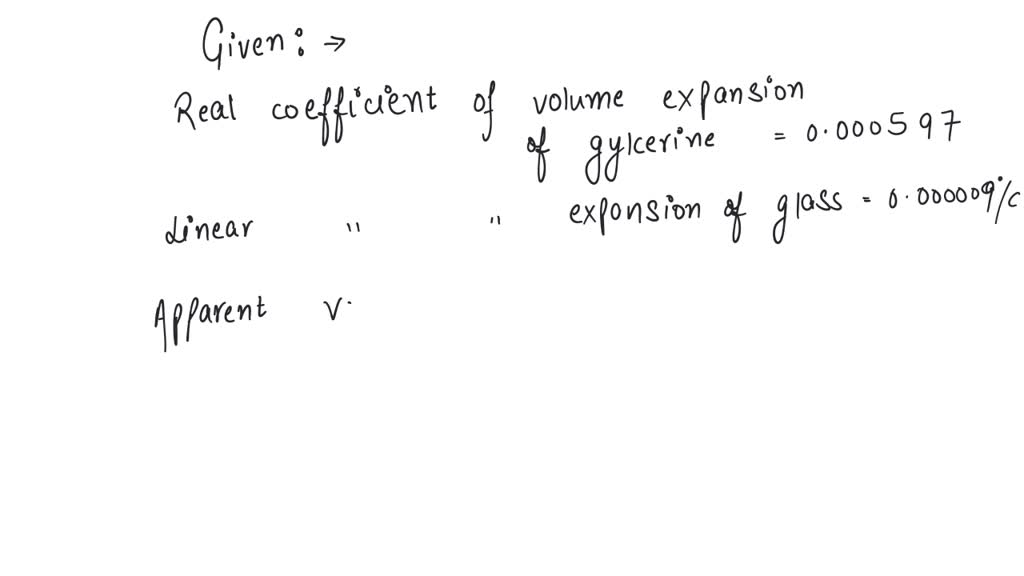 Given: →
Real coefficient of volume expansion
of gylcerine = 0.000597
Linear " " expansion of glass = 0.000009/°C
Apparent v.